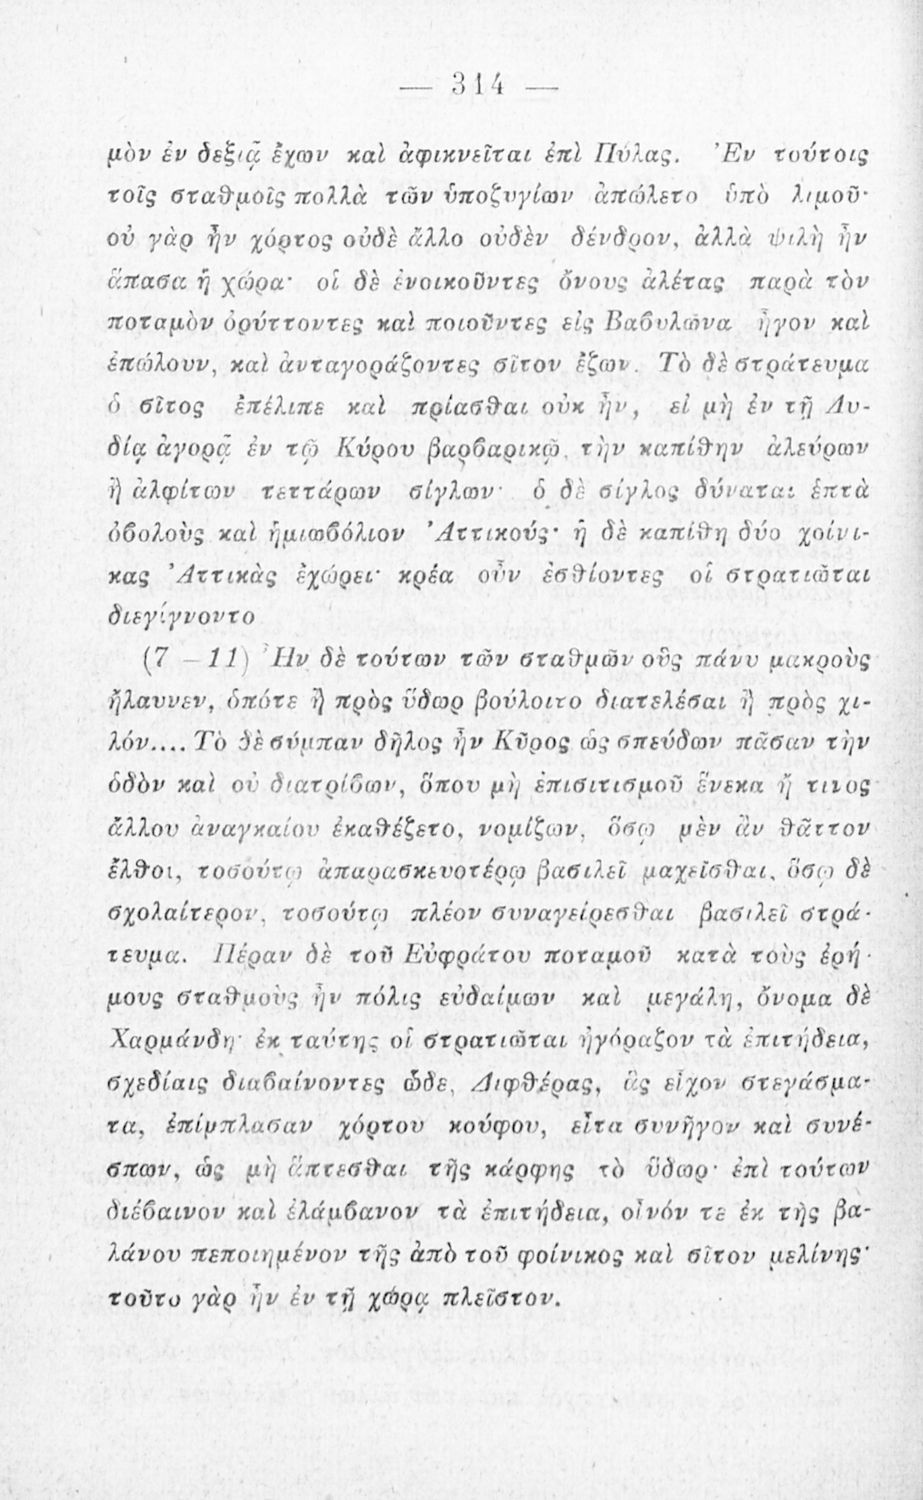 — 314 —
μὸν ἐν δεξιᾷ ἔχων καὶ ἀφικνεῖται ἐπὶ Πύλας. Ἐν τούτοις
τοῖς σταθμοῖς πολλὰ τῶν ὑποζυγίων ἀπώλετο ὑπὸ λιμοῦ·
οὐ γὰρ ἦν χόρτος οὐδὲ ἄλλο οὐδὲν δένδρον, ἀλλὰ ψιλὴ ἦν
ἅπασα ἡ χώρα· οἱ δὲ ἐνοικοῦντες ὄνους ἀλέτας παρὰ τὸν
ποταμὸν ὀρύττοντες καὶ ποιοῦντες εἰς Βαβυλῶνα ἦγον καὶ
ἐπώλουν, καὶ ἀνταγοράζοντες σῖτον ἔζων. Τὸ δὲ στράτευμα
ὁ σῖτος ἐπέλιπε καὶ πρίασθαι οὐκ ἦν, εἰ μὴ ἐν τῇ Λυ-
δίᾳ ἀγορᾷ ἐν τῷ Κύρου βαρβαρικῷ, τὴν καπίθην ἀλεύρων
ἢ ἀλφίτων τεττάρων σίγλων· ὁ δὲ σίγλος δύναται ἑπτὰ
ὀβολοὺς καὶ ἡμιωβόλιον Ἀττικούς· ἡ δὲ καπίθη δύο χοίνι-
κας Ἀττικὰς ἐχώρει· κρέα οὖν ἐσθίοντες οἱ στρατιῶται
διεγίγνοντο
(7 — 11) Ἦν δὲ τούτων τῶν σταθμῶν οὓς πάνυ μακροὺς
ἤλαυνεν, ὁπότε ἢ πρὸς ὕδωρ βούλοιτο διατελέσαι ἢ πρὸς χι-
λόν.... Τὸ δὲ σύμπαν δῆλος ἦν Κῦρος ὡς σπεύδων πᾶσαν τὴν
ὁδὸν καὶ οὐ διατρίβων, ὅπου μὴ ἐπισιτισμοῦ ἕνεκα ἤ τινος
ἄλλου ἀναγκαίου ἐκαθέζετο, νομίζων, ὅσῳ μὲν ἂν θᾶττον
ἔλθοι, τοσούτῳ ἀπαρασκευοτέρῳ βασιλεῖ μαχεῖσθαι, ὅσῳ δὲ
σχολαίτερον, τοσούτῳ πλέον συναγείρεσθαι βασιλεῖ στρά-
τευμα. Πέραν δὲ τοῦ Εὐφράτου ποταμοῦ κατὰ τοὺς ἐρή-
μους σταθμοὺς ἦν πόλις εὐδαίμων καὶ μεγάλη, ὄνομα δὲ
Χαρμάνδη· ἐκ ταύτης οἱ στρατιῶται ἠγόραζον τὰ ἐπιτήδεια,
σχεδίαις διαβαίνοντες ὧδε, Διφθέρας, ἃς εἶχον στεγάσμα-
τα, ἐπίμπλασαν χόρτου κούφου, εἶτα συνῆγον καὶ συνέ-
σπων, ὡς μὴ ἅπτεσθαι τῆς κάρφης τὸ ὕδωρ· ἐπὶ τούτων
διέβαινον καὶ ἐλάμβανον τὰ ἐπιτήδεια, οἶνόν τε ἐκ τῆς βα-
λάνου πεποιημένον τῆς ἀπὸ τοῦ φοίνικος καὶ σῖτον μελίνης·
τοῦτο γὰρ ἦν ἐν τῇ χώρᾳ πλεῖστον.